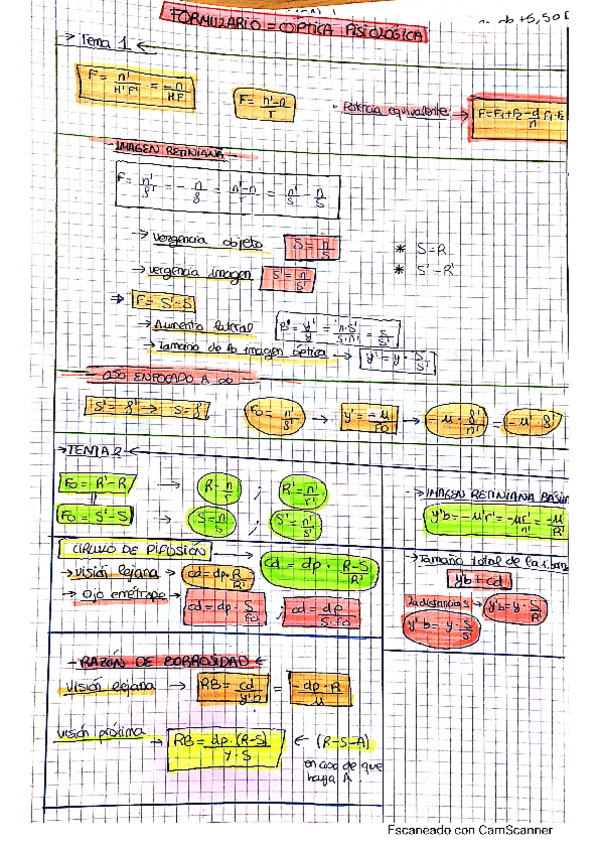 FORMULARIO = OPTICA FISIOLÓGICA
→ Tema 1 ←
F = n'/H'F' = -n/HF
F = n'-n/r
· Potencia equivalente → F = F1+F2 - d/n F1·F2
- IMAGEN RETINIANA -
F = n'/f' = - n/f = n'-n/r = n'/s' - n/s
→ vergencia objeto S = n/s
* S=R
→ vergencia imagen S' = n'/s'
* S'=R'
⇒ F = S'-S
→ Aumento lateral β' = y'/y = n·s'/s·n' = S/S'
→ Tamaño de la imagen óptica → y' = y · S/S'
- OJO ENFOCADO A ∞ -
s' = f' →
Fo = n'/f' → y' = -u/Fo → = -u · f'/n' = -u' f'
→ TEMA 2 ←
Fo = R'-R → R = n/r ; R' = n'/r'
Fo = S'-S → S = n/s ; S' = n'/s'
→ IMAGEN RETINIANA
y'b = -u'r' = -ur'/n' = -u/R'
CÍRCULO DE DIFUSIÓN → cd = dp · R-S/R'
→ visión lejana → cd = dp · R/R'
→ Ojo emétrope → cd = dp · S/Fo ; cd = dp/s·Fo
→ Tamaño total de la
y'b + cd
→ y'b = y · S/R'
y'b = y · S/S'
- RAZÓN DE BORROSIDAD ←
visión lejana → RB = cd/y'b = -dp·R/u
visión próxima → RB = dp·(R-S)/y·S ← (R-S-A)
en caso de que
haya A
Escaneado con CamScanner